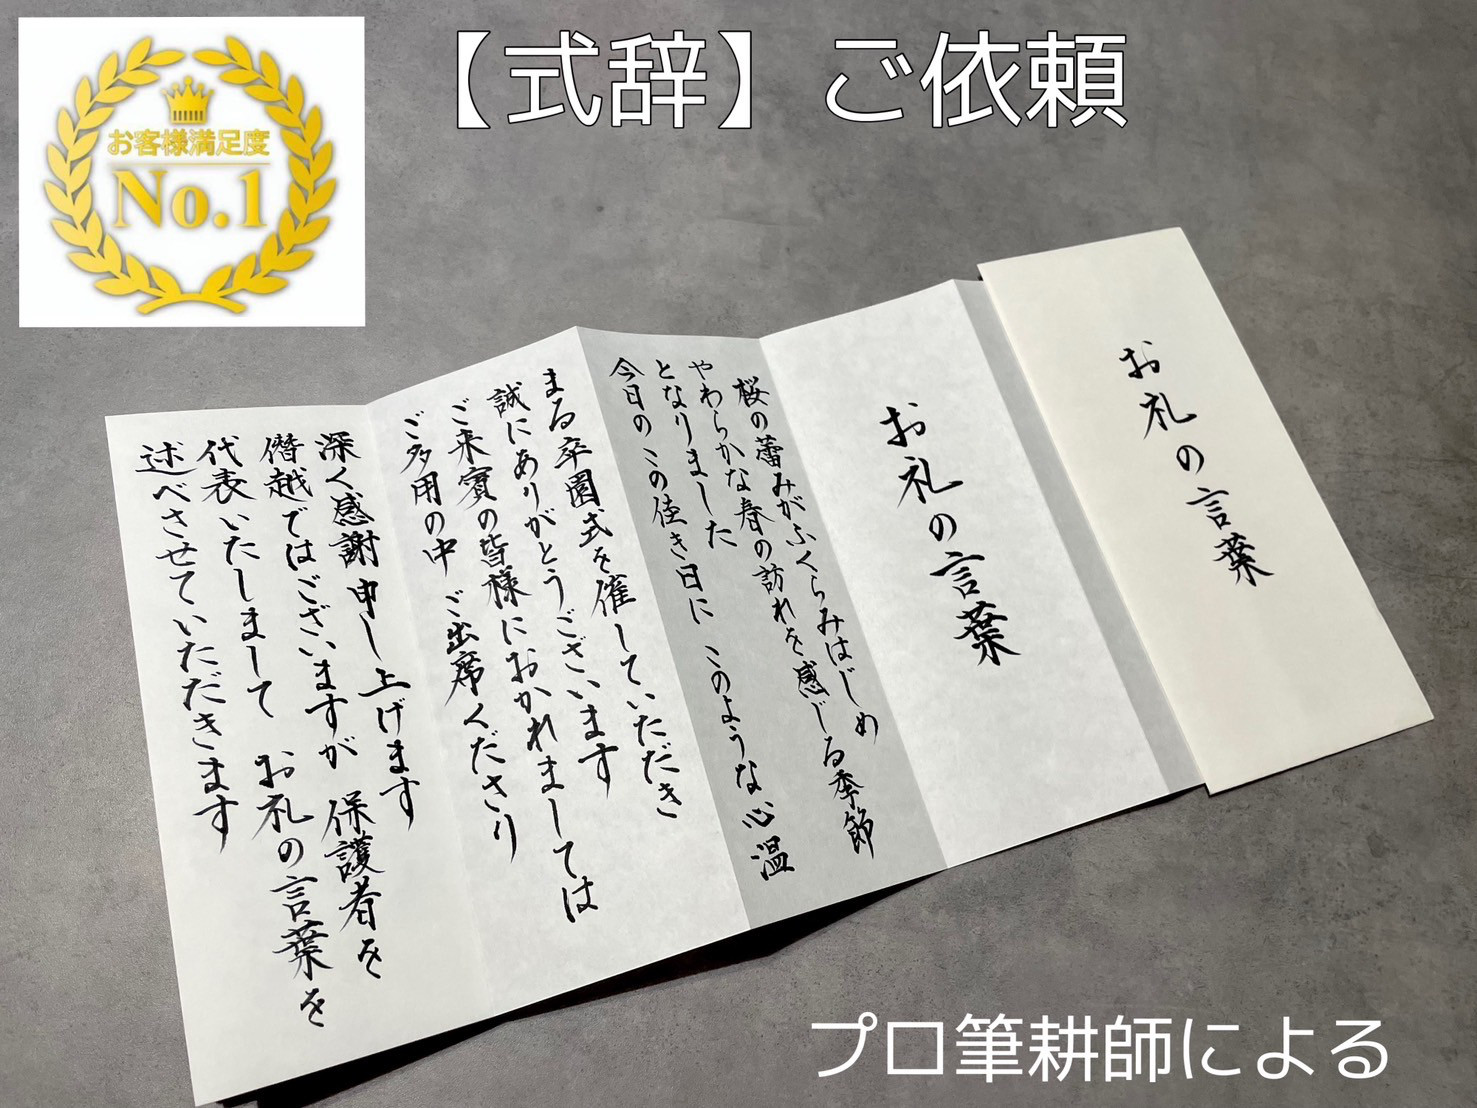 お客様満足度
No.1
【式辞】ご依頼
お礼の言葉
お礼の言葉
桜の蕾みがふくらみはじめ
やわらかな春の訪れを感じる季節
となりました
今日のこの佳き日に このような心温
まる卒園式を催していただき
誠にありがとうございます
ご来賓の皆様におかれましては
ご多用の中 ご出席くださり
深く感謝申し上げます
僭越ではございますが 保護者を
代表いたしまして お礼の言葉を
述べさせていただきます
プロ筆耕師による